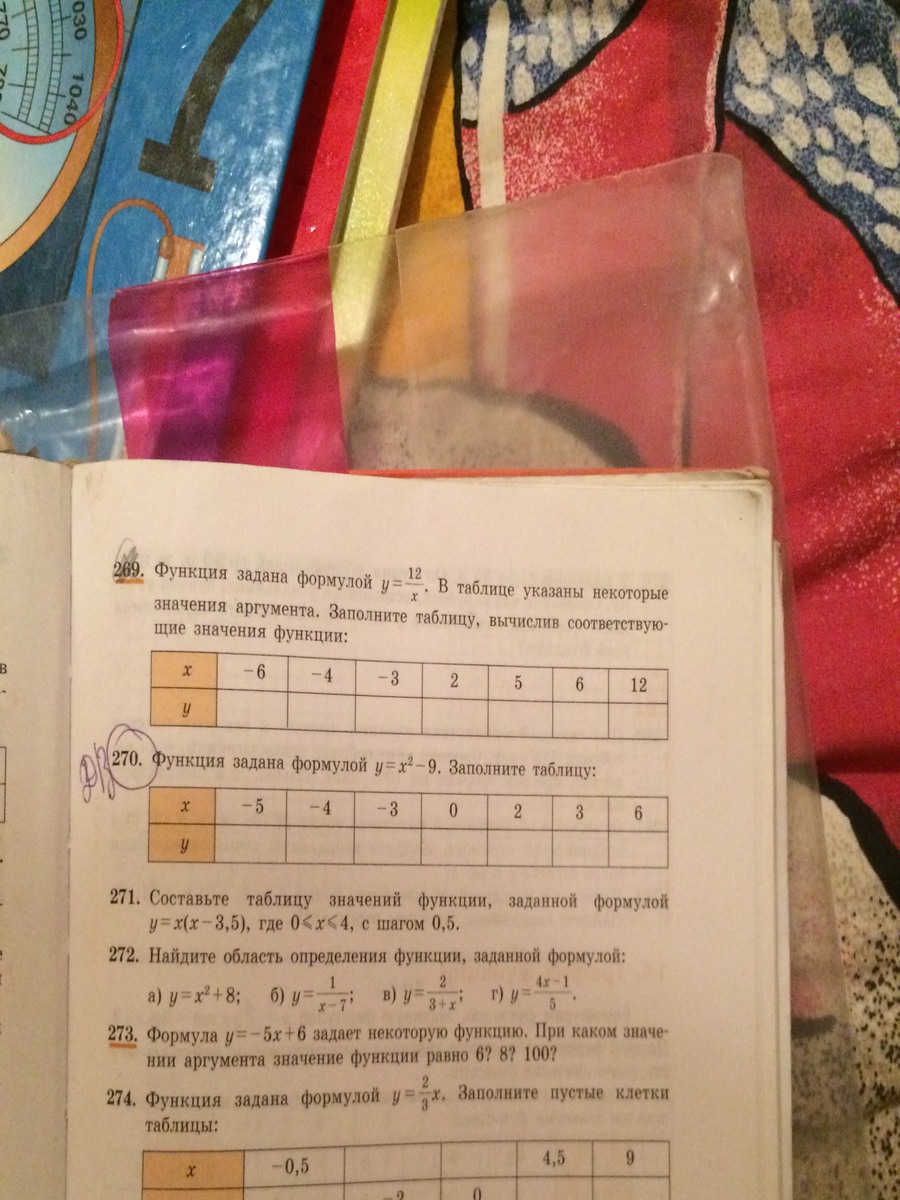 030
1040
770
269. Функция задана формулой y = 12/x. В таблице указаны некоторые
значения аргумента. Заполните таблицу, вычислив соответствую-
щие значения функции:
x −6 −4 −3 2 5 6 12
y
Д/З
270. Функция задана формулой y = x² − 9. Заполните таблицу:
x −5 −4 −3 0 2 3 6
y
271. Составьте таблицу значений функции, заданной формулой
y = x(x − 3,5), где 0 ⩽ x ⩽ 4, с шагом 0,5.
272. Найдите область определения функции, заданной формулой:
а) y = x² + 8; б) y = 1/(x − 7); в) y = 2/(3 + x); г) y = (4x − 1)/5.
273. Формула y = −5x + 6 задает некоторую функцию. При каком значе-
нии аргумента значение функции равно 6? 8? 100?
274. Функция задана формулой y = 2/3 x. Заполните пустые клетки
таблицы:
x −0,5 4,5 9
−2 0